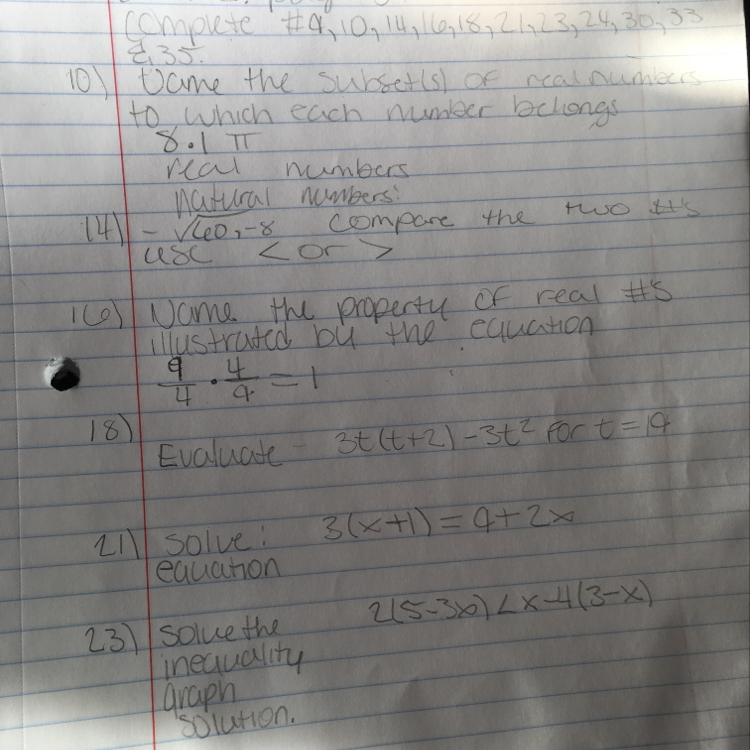 complete #9, 10, 14, 16, 18, 21, 23, 24, 30, 33
& 35.
10) Name the subset(s) of real numbers
to which each number belongs
8.1 π
real numbers
natural numbers:
14) -√60, -8 compare the two #'s
use < or >
16) Name the property of real #s
illustrated by the equation
9/4 · 4/9 = 1
18) Evaluate - 3t(t+2)-3t² for t=19
21) solve: 3(x+1) = 9+2x
equation
23) solve the 2(5-3x) < x-4(3-x)
inequality
graph
solution.